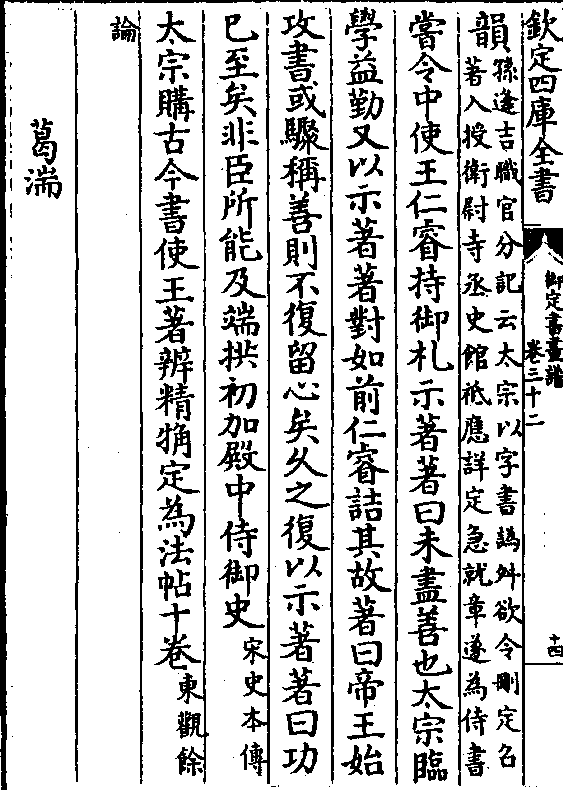 欽定四庫全書
御定書畫譜
卷三十二
十四
韻
孫逢吉職官分記云太宗以字書譌舛欲令刪定召
著入授衛尉寺丞史館祗應詳定急就章遂為侍書
嘗令中使王仁睿持御札示著著曰未盡善也太宗臨
學益勤又以示著著對如前仁睿詰其故著曰帝王始
攻書或驟稱善則不復留心矣久之復以示著著曰功
已至矣非臣所能及端拱初加殿中侍御史宋史本傳
太宗購古今書使王著辨精觕定為法帖十卷東觀餘
論
葛湍